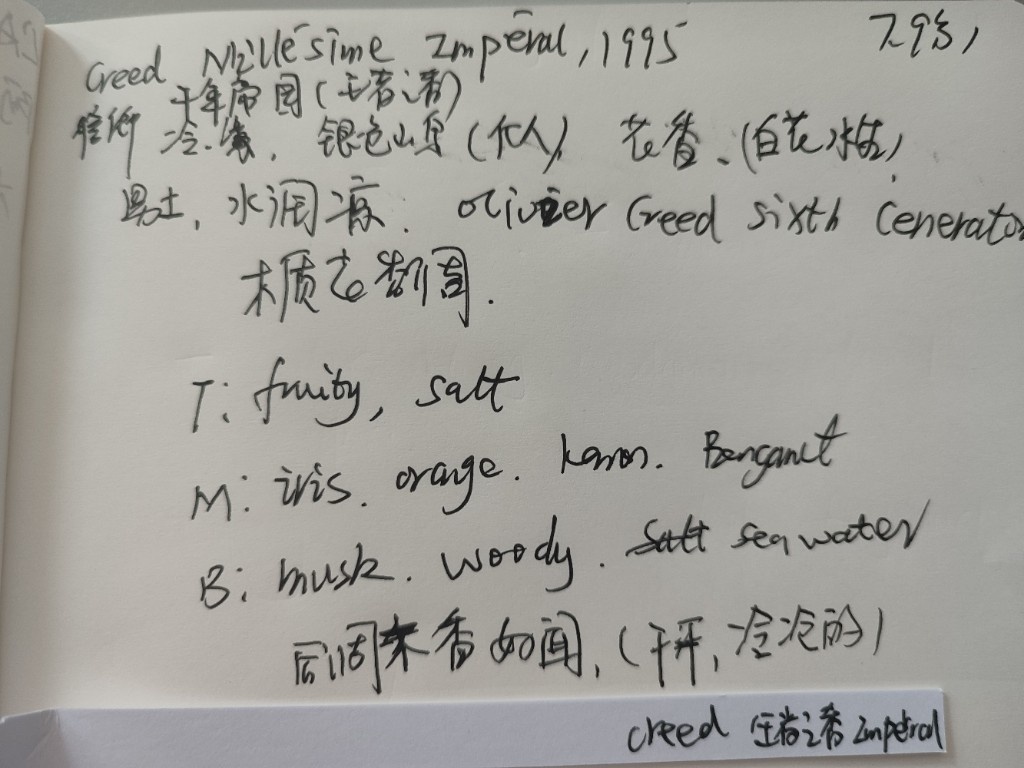 Creed Millésime Zmpēral, 1995 7.9分,
千年帝国(王者之香)
冷. 银色山泉(仇人) 花香、(白花水生)
男士, 水润凉. olivier Creed sixth Cenerato
木质花香调.
T: fruity, salt
M: iris. orange. Bergamot
B: musk. woody. salt sea water
后调木香好闻, (干干, 冷冷的)
creed 王者之香 Zmpēral